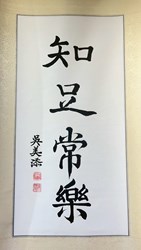 知足常樂
吳美添